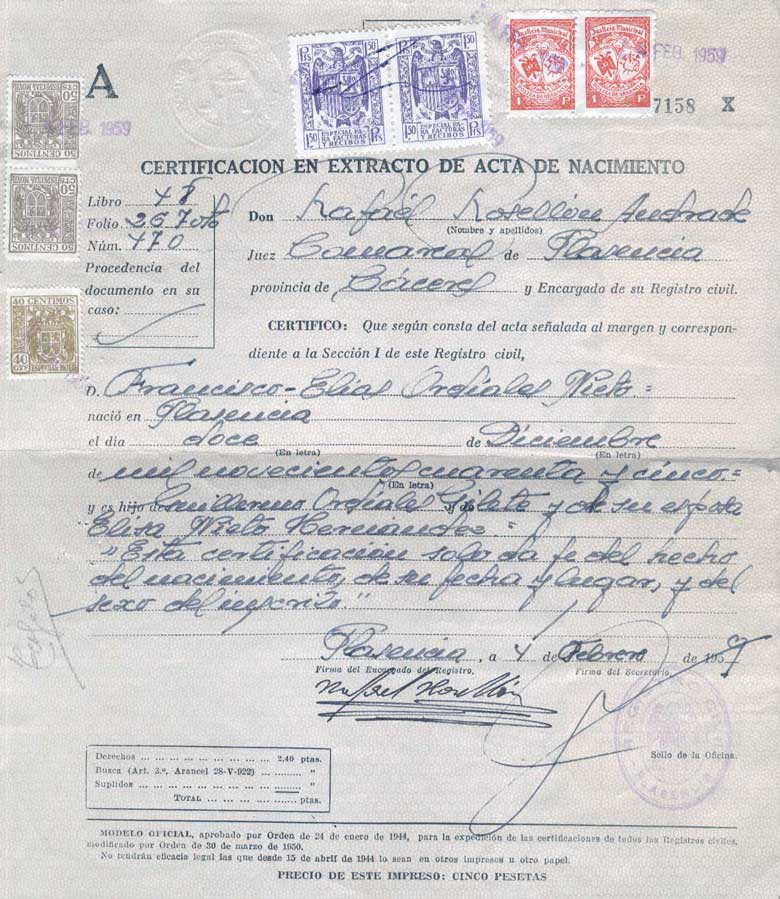 A
4 FEB. 1959
FEB. 1959
7158 X
1'50 Pts
ESPECIAL PARA FACTURAS Y RECIBOS
1'50 Pts
ESPECIAL PARA FACTURAS Y RECIBOS
Justicia Municipal
1 P
Justicia Municipal
1 P
50 CENTIMOS
50 CENTIMOS
40 CENTIMOS
40 CTS ESPECIAL MOVIL
CERTIFICACION EN EXTRACTO DE ACTA DE NACIMIENTO
Libro 48
Folio 267 vto
Núm. 470
Procedencia del
documento en su
caso:
Don Rafael Rosellón Andrade
(Nombre y apellidos)
Juez Comarcal de Plasencia
provincia de Cáceres y Encargado de su Registro civil.
CERTIFICO: Que según consta del acta señalada al margen y correspon-
diente a la Sección I de este Registro civil,
D. Francisco-Elias Ordiales Nieto.=
nació en Plasencia
el día doce de Diciembre
(En letra) (En letra)
de mil novecientos cuarenta y cinco.=
(En letra)
y es hijo de Guillermo Ordiales y de su esposa
Elisa Nieto Hernández.=
"Esta certificación solo da fe del hecho
del nacimiento, de su fecha y lugar, y del
sexo del inscrito."
Plasencia, a 4 de Febrero de 1959
Firma del Encargado del Registro. Firma del Secretario,
Rafael Rosellón
Sello de la Oficina.
Derechos ... 2,40 ptas.
Busca (Art. 3.º, Arancel 28-V-922) ... "
Suplidos ... "
TOTAL ... ptas.
MODELO OFICIAL, aprobado por Orden de 24 de enero de 1944, para la expedición de las certificaciones de todos los Registros civiles,
modificado por Orden de 30 de marzo de 1950.
No tendrán eficacia legal las que desde 15 de abril de 1944 lo sean en otros impresos u otro papel.
PRECIO DE ESTE IMPRESO: CINCO PESETAS